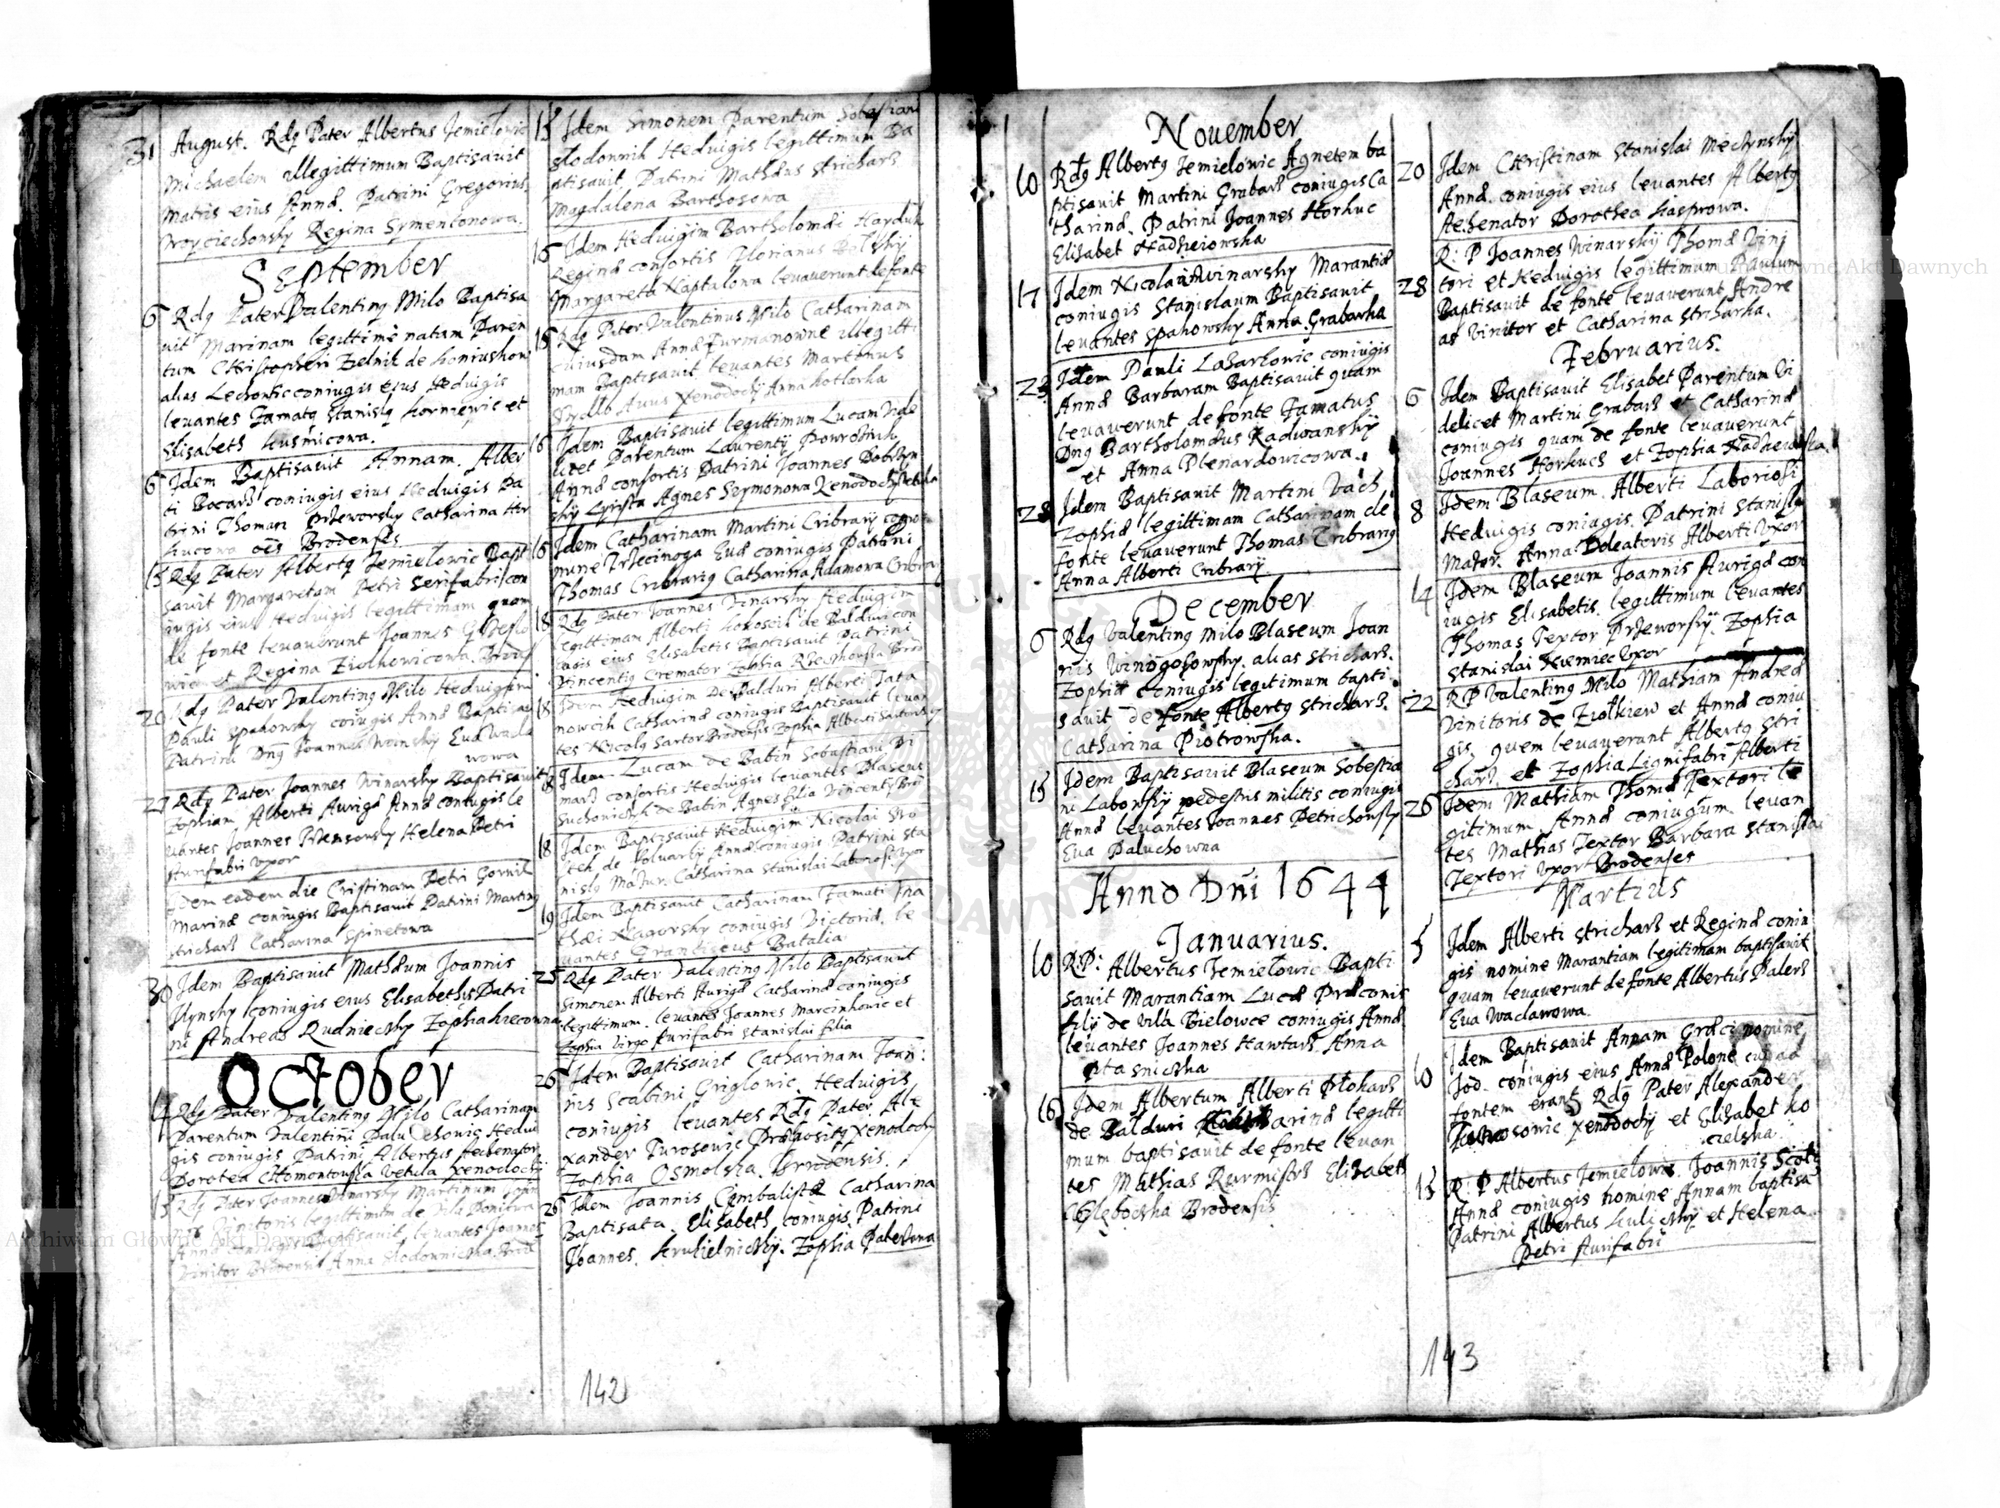 31 August. Rdq Pater Albertus Jemielowic
Michaelem illegittimum Baptisavit
matris eius Annæ. Patrini Gregorius
Woyciechowsky Regina Symentonowa.
September
6 Rdq Pater Valentinq Milo Baptisa
vit Marinam legittimè natam Paren
tum Christopheri Zelnik de Koniuskow
alias coniugis ejus Heduigis
levantes Famatq Stanislq Korniewic et
Elisabeth Kusnicowa.
6 Idem Baptisavit Annam. Alber
ti Bocars coniugis eius Heduigis Pa
trini Thomas Przeworsky Catharina
oēs Brodenses
15 Rdq Pater Albertq Jemielowic Bapt
savit Margaretam Petri Serifabri con
iugis eius Heduigis legittimam quam
de fonte levaverunt Joannes
et Regina Ziolkowiconta.
20 Rdq Pater Valentinq Milo Heduigim
Pauli Spakowsky coiugis Annæ Baptisa
Patrini Dnq Joannes Eva Wacla
wowa
27 Rdq Pater Joannes Winarsky Baptisavit
Zophiam Alberti Aurigæ Annæ coniugis le
vantes Joannes Helena Petri
Aurifabri Uxor
Idem eadem die Cristinam Petri Gornik
Marinæ coniugis Baptisavit Patrini Martinq
Strichars Catharina Spinetowa
30 Idem Baptisavit Mathæum Joannis
Ilynsky coniugis eius Elisabethis Patri
ni Andreas Rudniecsky Zophia
October
14 Rdq Pater Valentinq Milo Catharinam
Parentum Valentini Paluchowic Hedui
gis coniugis Patrini Albertus Aehenator
Dorotea Chomontowska vetula xenodochij
15 Rdq Pater Joannes Winarsky Martinum
Vinitoris legittimum de Vila Ponikwa
Annæ coniugis Baptisavit levantes Joannes
Vinitor Brodensis Anna Slodownicska
15 Idem Simonem Parentum Sobestiani
Slodownik Heduigis legittimum Ba
ptisavit Patrini Mathæus Strichars
Magdalena Barthosowa
15 Idem Heduigim Bartholomæi Harduk
Reginæ consortis Florianus Bilskij
Margareta Kaptalowa levaverunt de fonte
15 Rdq Pater Valentinus Milo Catharinam
cuiusdam Annæ Furmanowne illegitti
mam Baptisavit levantes Martinus
Avus xenodochij Anna Kotlarka
16 Idem Baptisavit legittimum Lucam vide
licet Parentum Laurentij Powroźnik
Annæ consortis Patrini Joannes Dobrzyn
skij Agnes Szymonowa xenodochij vetula
16 Idem Catharinam Martini Cribrarij cogno
mine Trzecinoga Evæ coniugis Patrini
Thomas Cribrariq Catharina Adamowa Cribra
18 Rdq Pater Joannes Vinarsky Heduigim
legittimam Alberti Kokosch de Balduri con
iugis eius Elisabetis Baptisavit Patrini
Vincentiq Cremator Zophia
18 Idem Heduigim De Balduri Alberti Tata
nowcik Catharinæ coniugis Baptisavit levan
tes Nicolq Sartor Brodensis Zophia Alberti
18 Idem Lucam de Batin Sobestiani
consortis Heduigis levantes Blaseus
Suchonicsyk de Batin Agnes filia Vincentij
18 Idem Baptisavit Heduigim Nicolai
de Annæ coniugis Patrini Sta
nislq Mazur. Catharina Stanislai Laboriosi Uxor
19 Idem Baptisavit Catharinam Famati
thæi Nagorsky coniugis Victoriæ. le
vantes Franciscus Batalia
25 Rdq Pater Valentinq Milo Baptisavit
Simonem Alberti Aurigæ Catharinæ coniugis
legittimum. levantes Joannes Marcinkowic et
Zophia Virgo Aurifabri Stanislai filia
26 Idem Baptisavit Catharinam Joan:
nis Scabini Griglowic. Heduigis
coniugis levantes Rdq Pater Ale
xander Turosowic Præpositq Xenodoch
Zophia Osmolska. Brodensis.
26 Idem Joannis Cymbalistæ Catharina
Baptisata. Elisabeth coniugis. Patrini
Joannes. Krukielnickij. Zophia Paterowa
142
November
10 Rdq Albertq Jemielowic Agnetem ba
ptisavit Martini Grabars coniugis Ca
tharinæ. Patrini Joannes Horkuc
Elisabet Nadzieiowska
17 Idem Nicolai Winarsky Marantiæ
coniugis Stanislaum Baptisavit
levantes Spakowsky Anna Grabarka
23 Idem Pauli Lazarkowic coniugis
Annæ Barbaram Baptisavit quam
levaverunt de fonte Famatus
Dnq Bartholomæus Radwanskij
et Anna Plenardowicowa.
28 Idem Baptisavit Martini Vach
Zophiæ legittimam Catharinam de
fonte levaverunt Thomas Cribrariq
Anna Alberti Cribrarij
December
6 Rdq Valentinq Milo Blaseum Joan
nis Winogosowsky. alias Strichars.
Zophiæ coniugis legitimum bapti
savit de fonte Albertq Strichars.
Catharina Piotrowska.
15 Idem Baptisavit Blaseum Sobestia
ni Labonskij pedestris militis coniugis
Annæ levantes Joannes Petrichowsky
Eva Paluchowna
Anno Dni 1644
Januarius.
10 R.P: Albertus Jemielowic Bapti
savit Marantiam Lucæ Præconis
filij de Vila Bielowce coniugis Annæ
levantes Joannes Hawtars Anna
Ptasnicska
16 Idem Albertum Alberti Plokars
de Balduri Catharinæ legitti
mum baptisavit de fonte levan
tes Mathias Kurmistrs Elisabeth
Glębocska Brodensis
20 Idem Christinam Stanislai Mechnskij
Annæ. coniugis eius levantes Albertq
Aehenator Dorothea Kasprowa.
28 R: P Joannes Winarskij Thomæ Vini
tori et Heduigis legittimum Paulum
Baptisavit de fonte levaverunt Andre
as Vinitor et Catharina Stricharka.
Februarius.
6 Idem Baptisavit Elisabet Parentum Vi
delicet Martini Grabars et Catharinæ
coniugis quam de fonte levaverunt
Joannes Horkuch et Zophia Nadzieiowska.
8 Idem Blaseum. Alberti Laboriosi
Heduigis coniugis. Patrini Stanislq
Mazor. Anna Doleatoris Alberti Uxor
14 Idem Blaseum Joannis Aurigæ con
iugis Elisabetis. legittimum levantes
Thomas Textor Przeworskij. Zophia
Stanislai Niemiec Uxor
22 R P Valentinq Milo Mathiam Andreæ
Vinitoris de Ziolkiew et Annæ coniu
gis. quem levaverunt Albertq Stri
chars. et Zophia Lignifabri Alberti
26 Idem Mathiam Thomæ Textori le
gitimum Annæ coniugum. levan
tes Mathias Textor Barbara Stanislai
Textori Uxor Brodenses
Martius
5 Idem Alberti Strichars et Reginæ coniu
gis nomine Marantiam legitimam baptisavit
quam levaverunt de fonte Albertus Palers
Eva Waclawowa.
10 Idem Baptisavit Annam Græci nomine
Jod. coniugis eius Annæ Polonę cui ad
fontem erant Rdq Pater Alexander
Turosowic xenodochij et Elisabet Ko
cielska
13 R: P Albertus Jemielowic. Joannis Scoti
Annæ coniugis nomine Annam baptisa
Patrini Albertus Kulicskij et Helena
Petri Aurifabri
143
Archiwum Główne Akt Dawnych